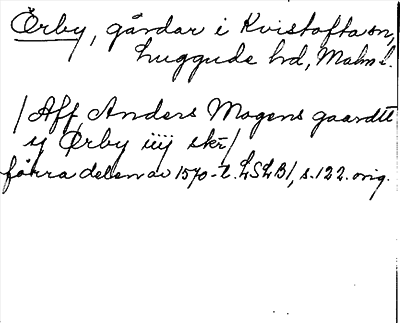 Örby, gårdar i Kvistofta sn,
Luggude hd, Malm. l.
/Aff Anders Mogens gaardtt
y Ørby iiij skr/
förra delen av 1570-t. LSLB/, s. 122. orig.